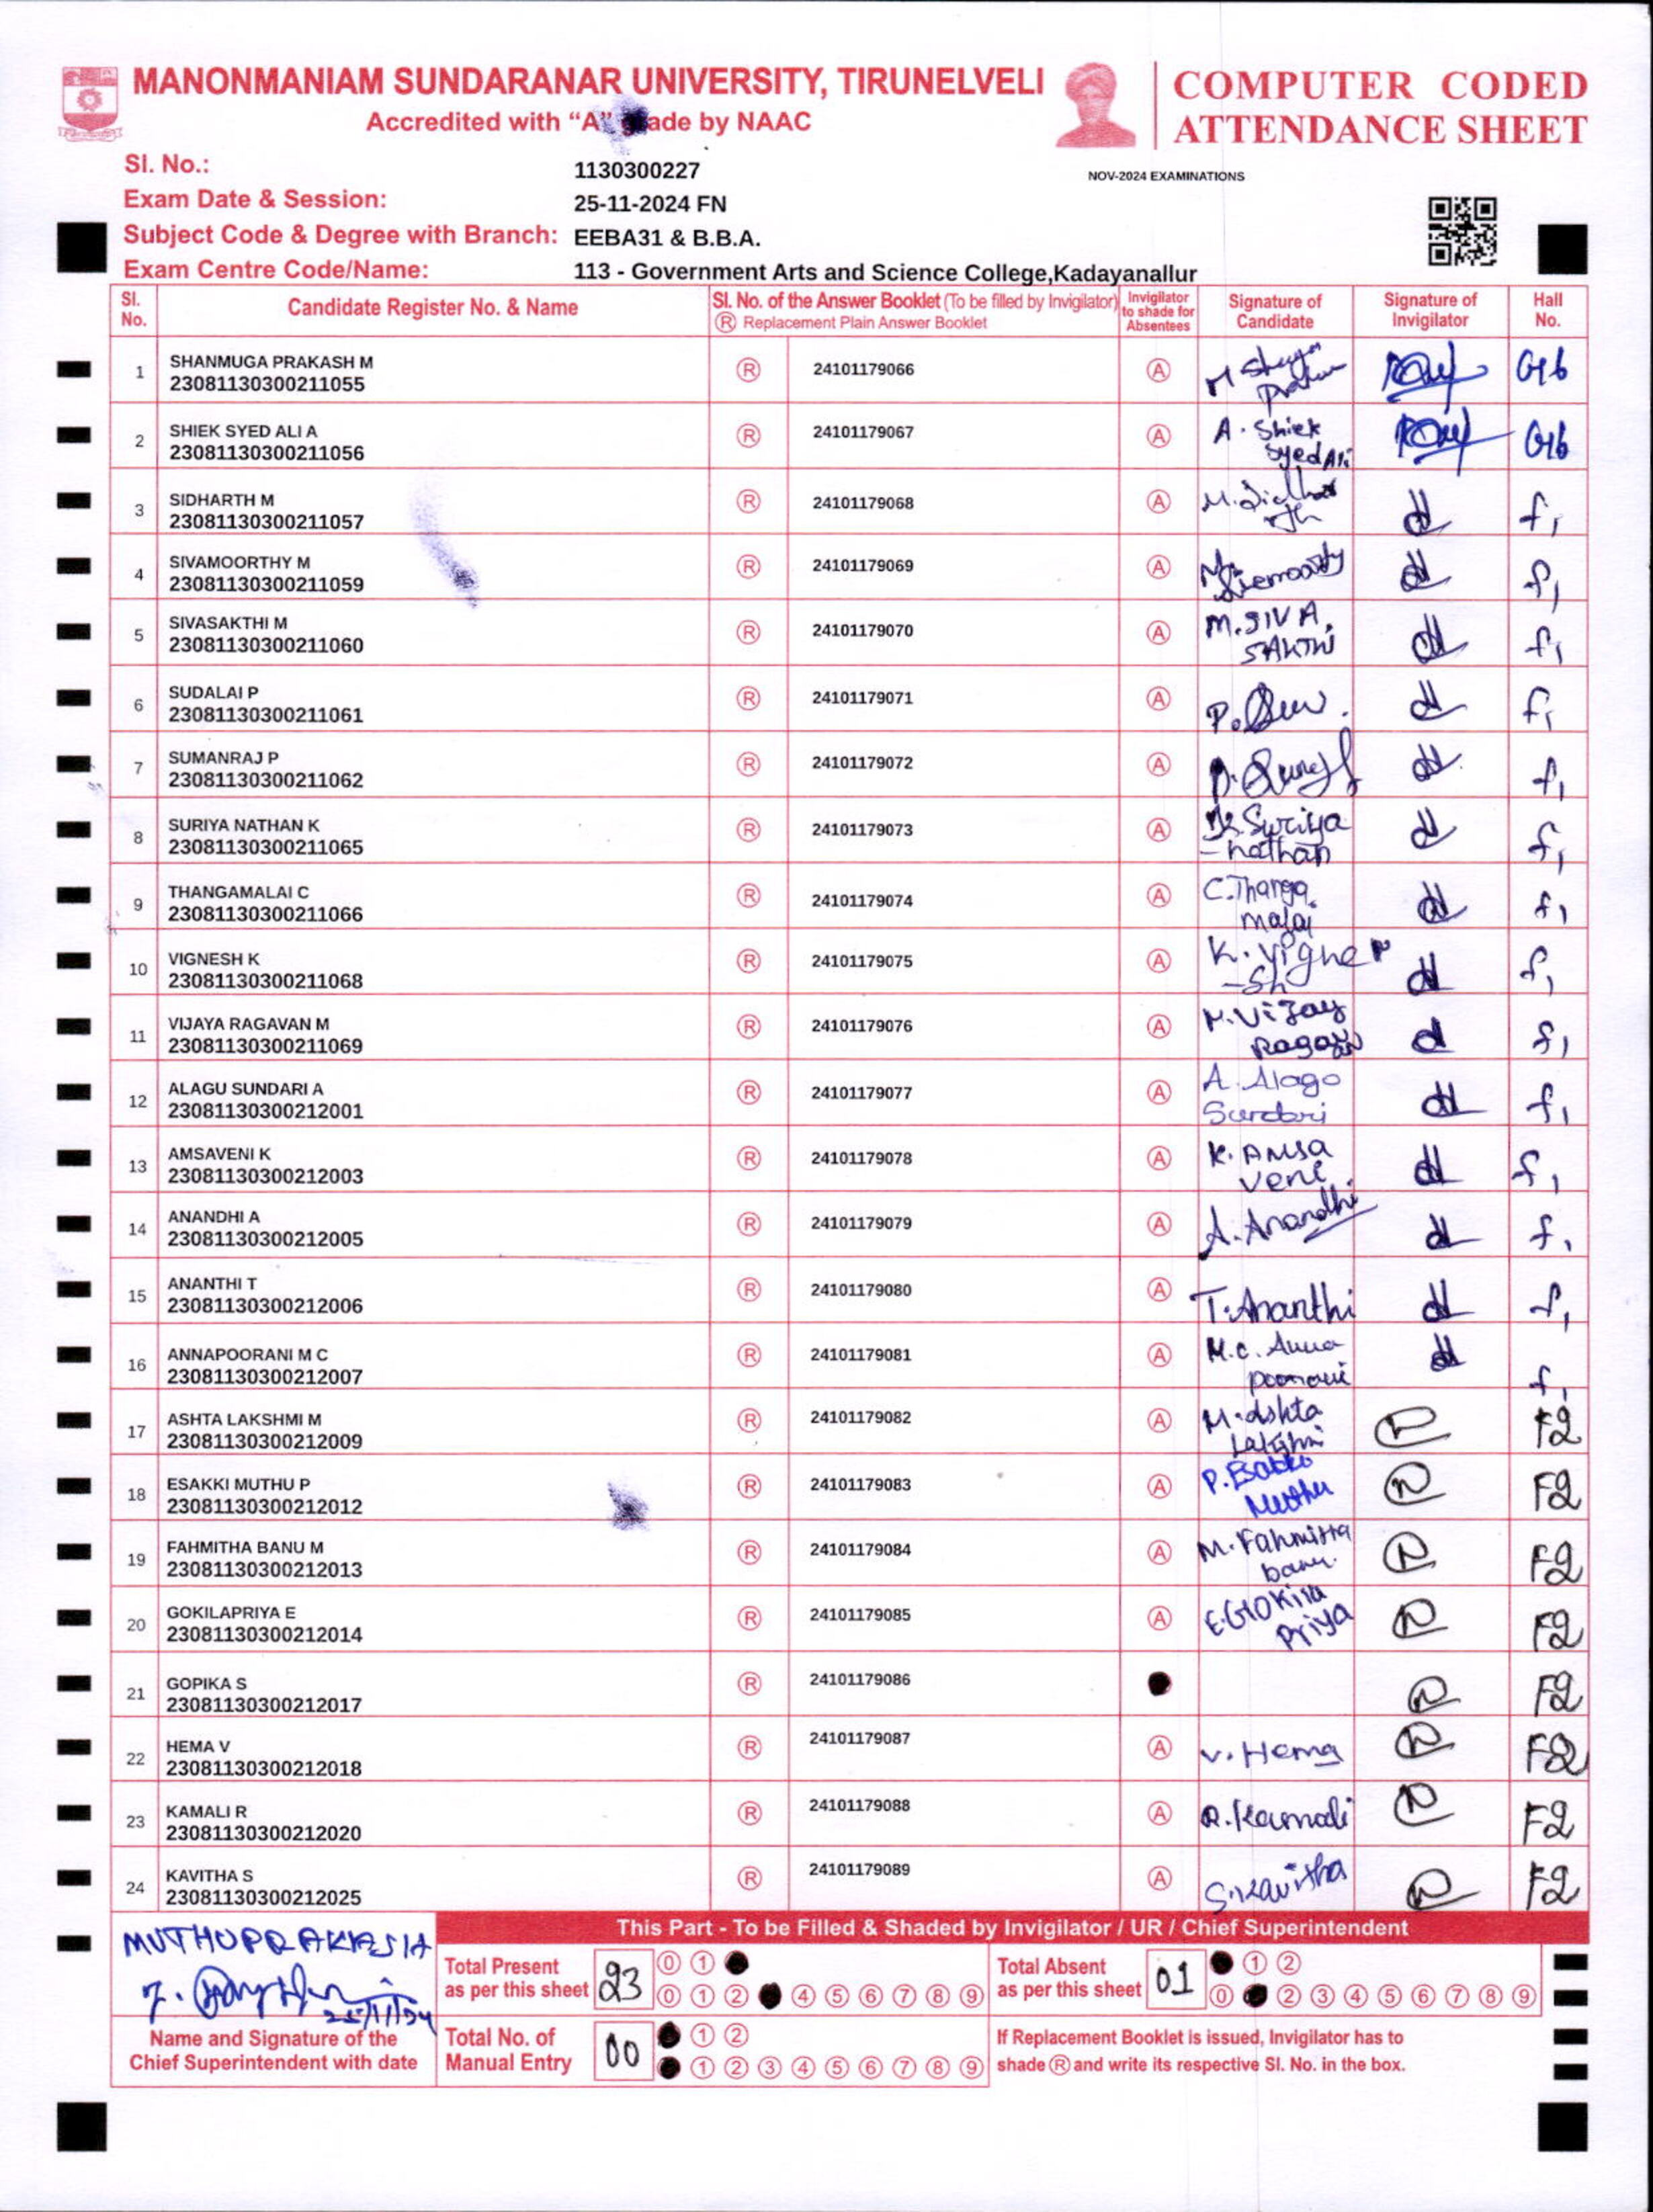 MANONMANIAM SUNDARANAR UNIVERSITY, TIRUNELVELI
Accredited with “A” Grade by NAAC
COMPUTER CODED
ATTENDANCE SHEET
NOV-2024 EXAMINATIONS
Sl. No.: 1130300227
Exam Date & Session: 25-11-2024 FN
Subject Code & Degree with Branch: EEBA31 & B.B.A.
Exam Centre Code/Name: 113 - Government Arts and Science College,Kadayanallur
Sl. No. Candidate Register No. & Name Sl. No. of the Answer Booklet (To be filled by Invigilator) Ⓡ Replacement Plain Answer Booklet Invigilator to shade for Absentees Signature of Candidate Signature of Invigilator Hall No.
1 SHANMUGA PRAKASH M Ⓡ 24101179066 Ⓐ
23081130300211055
2 SHIEK SYED ALI A Ⓡ 24101179067 Ⓐ A. Shiek
23081130300211056 Syed Ali
3 SIDHARTH M Ⓡ 24101179068 Ⓐ
23081130300211057 f1
4 SIVAMOORTHY M Ⓡ 24101179069 Ⓐ
23081130300211059 f1
5 SIVASAKTHI M Ⓡ 24101179070 Ⓐ M.SIVA
23081130300211060 SAKTHI f1
6 SUDALAI P Ⓡ 24101179071 Ⓐ
23081130300211061 f1
7 SUMANRAJ P Ⓡ 24101179072 Ⓐ
23081130300211062 f1
8 SURIYA NATHAN K Ⓡ 24101179073 Ⓐ K.Suriya
23081130300211065 -nathan f1
9 THANGAMALAI C Ⓡ 24101179074 Ⓐ C.Thanga
23081130300211066 malai f1
10 VIGNESH K Ⓡ 24101179075 Ⓐ K.Vighe
23081130300211068 -Sh f1
11 VIJAYA RAGAVAN M Ⓡ 24101179076 Ⓐ M.Vijay
23081130300211069 f1
12 ALAGU SUNDARI A Ⓡ 24101179077 Ⓐ A. Alago
23081130300212001 Sundari f1
13 AMSAVENI K Ⓡ 24101179078 Ⓐ K. Amsa
23081130300212003 veni f1
14 ANANDHI A Ⓡ 24101179079 Ⓐ A.Anandhi
23081130300212005 f1
15 ANANTHI T Ⓡ 24101179080 Ⓐ T.Ananthi
23081130300212006 f1
16 ANNAPOORANI M C Ⓡ 24101179081 Ⓐ M.C. Anna
23081130300212007 poorani f1
17 ASHTA LAKSHMI M Ⓡ 24101179082 Ⓐ M.Ashta F2
23081130300212009 Lakshmi
18 ESAKKI MUTHU P Ⓡ 24101179083 Ⓐ P.Esakki F2
23081130300212012 Muthu
19 FAHMITHA BANU M Ⓡ 24101179084 Ⓐ M.Fahmitha F2
23081130300212013 banu.
20 GOKILAPRIYA E Ⓡ 24101179085 Ⓐ E.Gokila F2
23081130300212014 Priya
21 GOPIKA S Ⓡ 24101179086 F2
23081130300212017
22 HEMA V Ⓡ 24101179087 Ⓐ V.Hema F2
23081130300212018
23 KAMALI R Ⓡ 24101179088 Ⓐ R.Kamali F2
23081130300212020
24 KAVITHA S Ⓡ 24101179089 Ⓐ S.Kavitha F2
23081130300212025
This Part - To be Filled & Shaded by Invigilator / UR / Chief Superintendent
MUTHUPRAKASH
25/11/24
Name and Signature of the
Chief Superintendent with date
Total Present 0 1
as per this sheet 23 0 1 2 4 5 6 7 8 9
Total Absent 1 2
as per this sheet 01 0 2 3 4 5 6 7 8 9
Total No. of 1 2
Manual Entry 00 1 2 3 4 5 6 7 8 9
If Replacement Booklet is issued, Invigilator has to
shade Ⓡ and write its respective Sl. No. in the box.